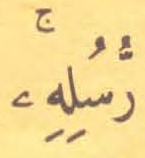 رُّسُلِهِۦ ۚ